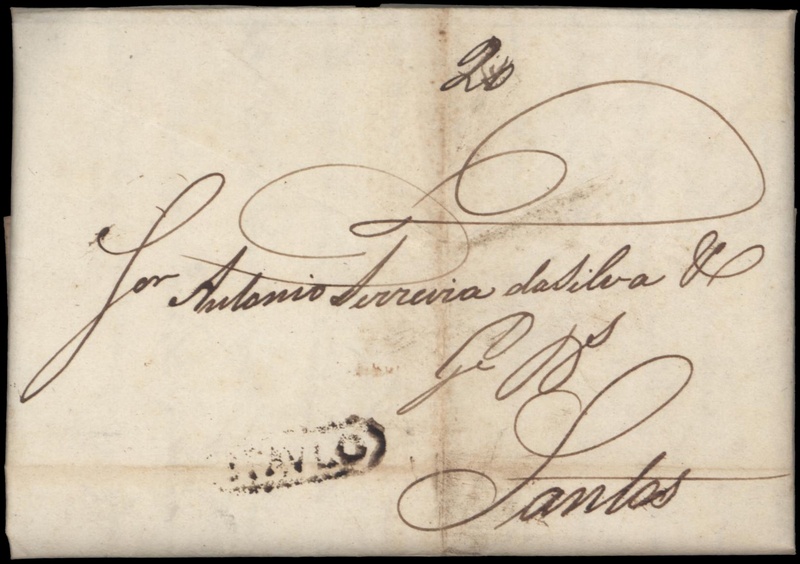 20
Snr Antonio Ferreira da Silva &
Ge Ds
Santos